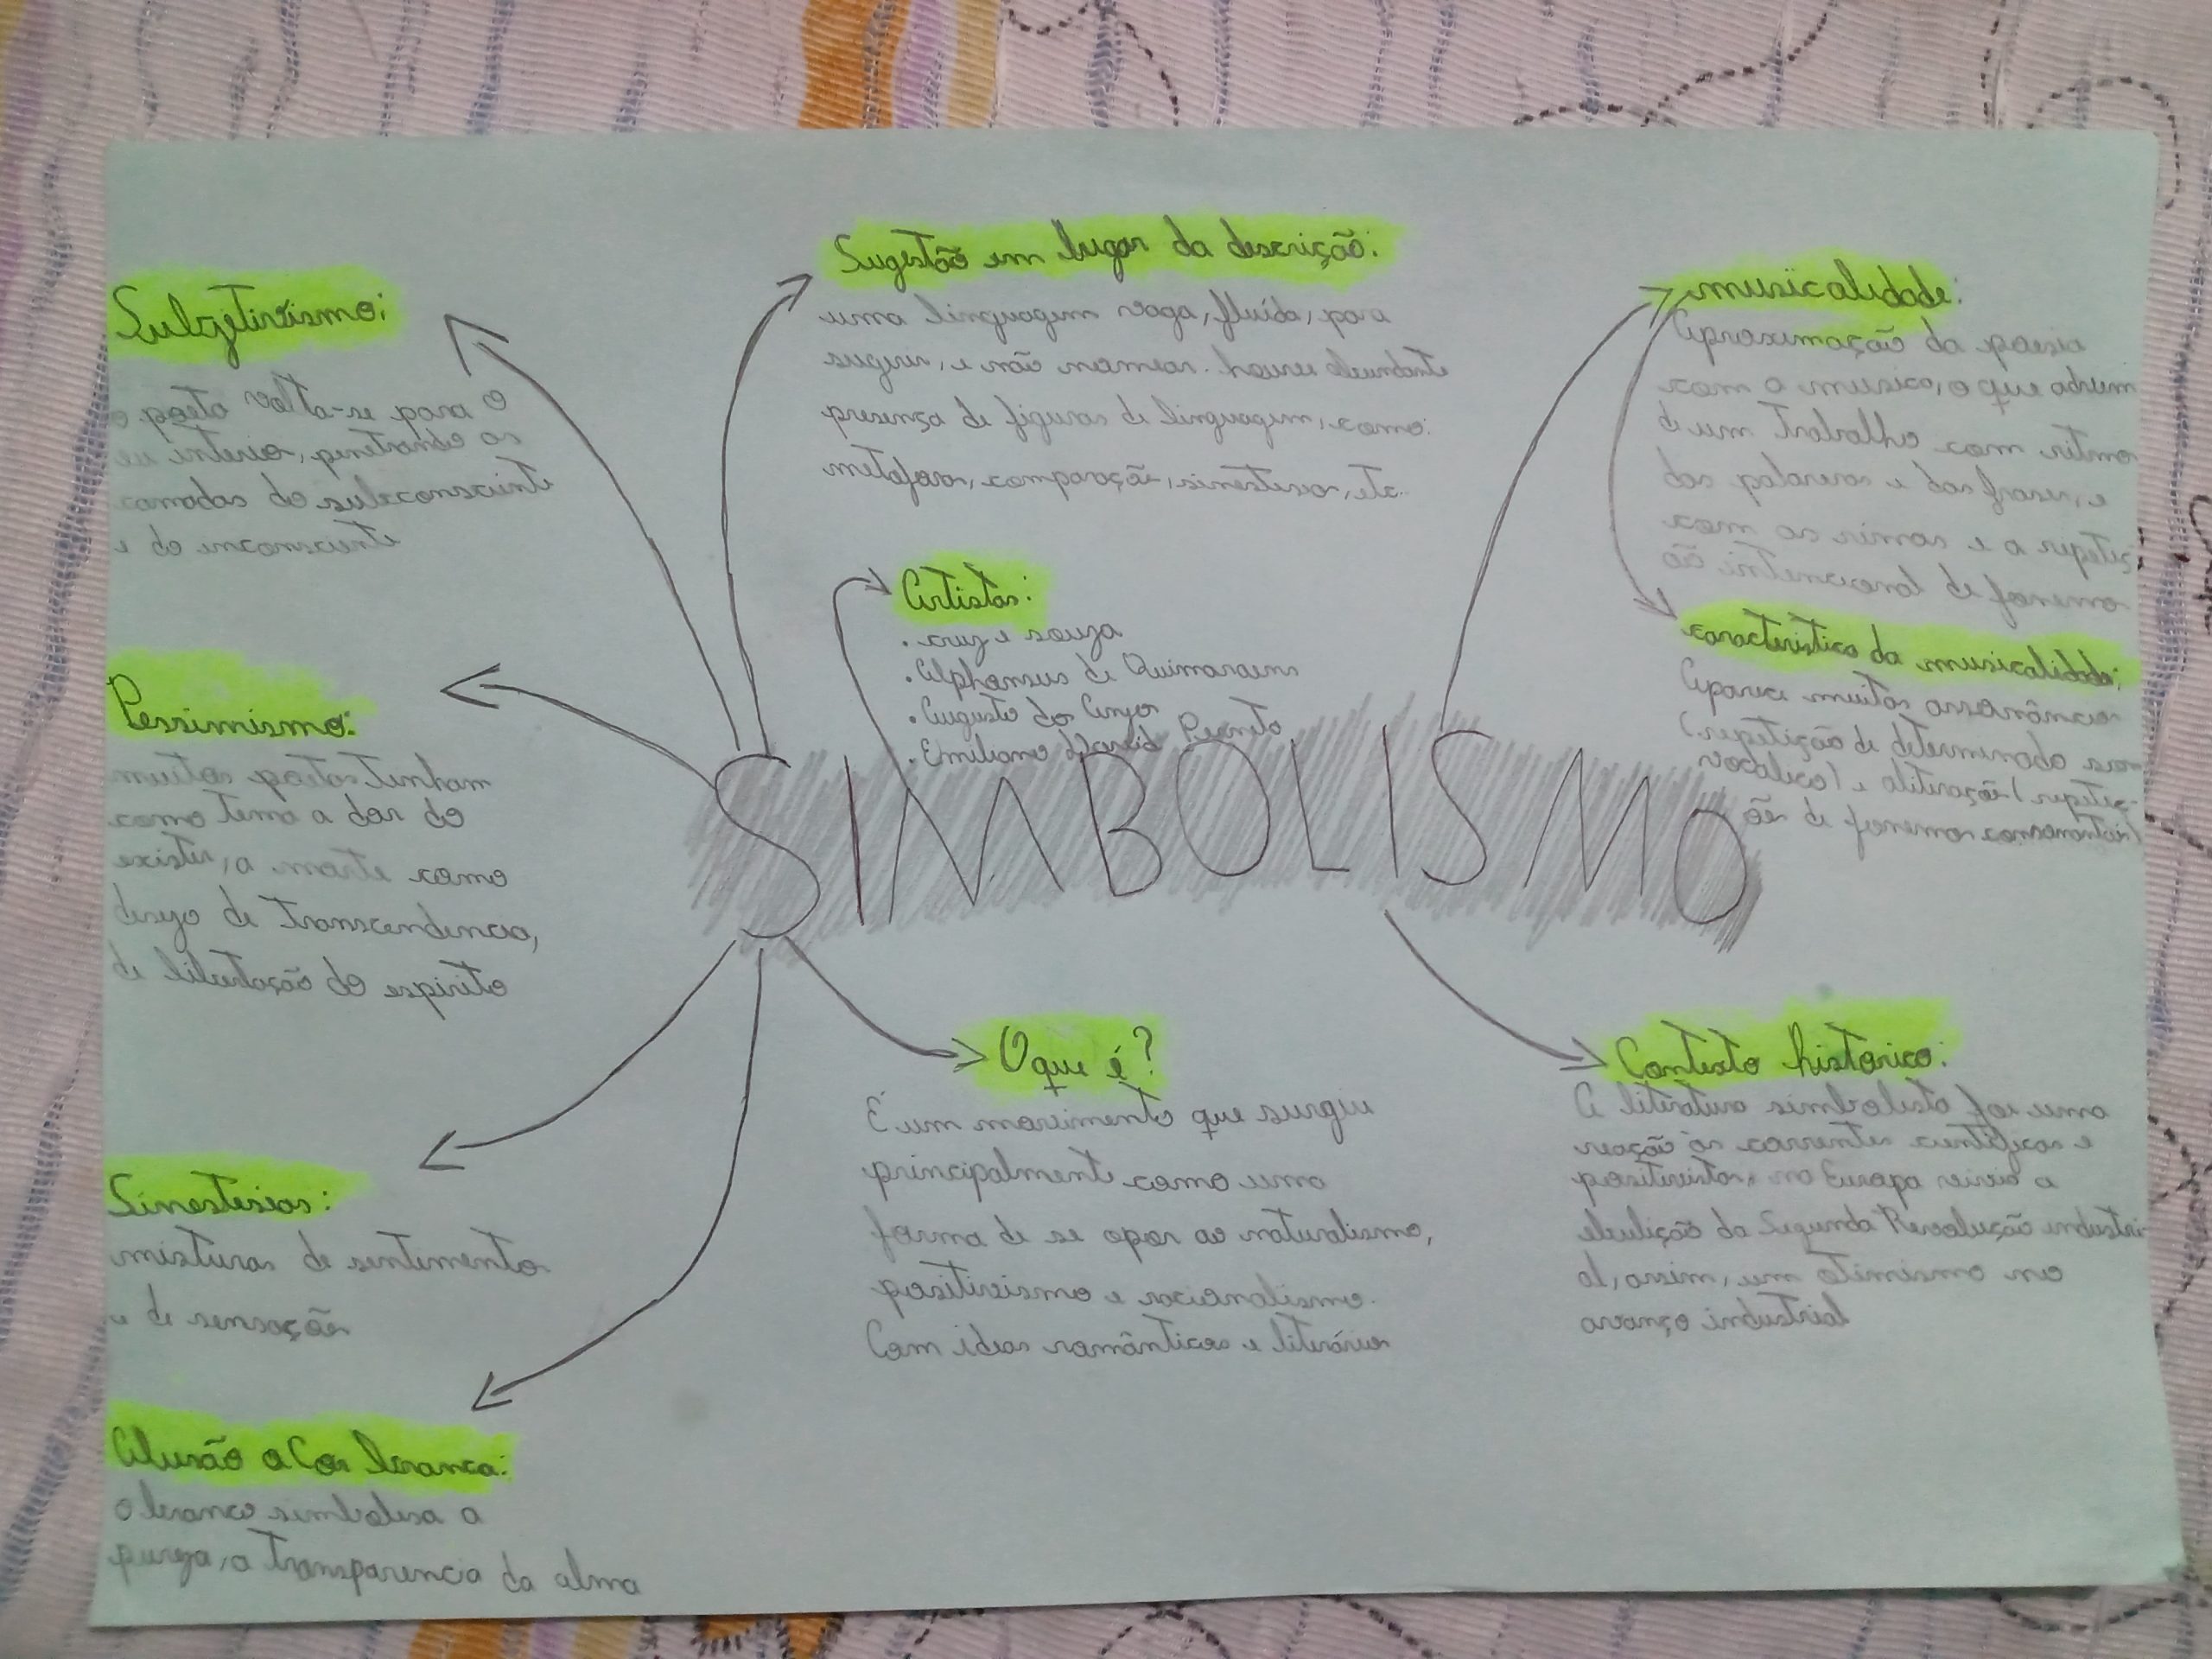 SIMBOLISMO
Subjetivismo:
o poeta volta-se para o
eu interior, penetrando as
camadas do subconsciente
e do inconsciente
Pessimismo:
muitos poetas tinham
como tema a dor do
existir, a morte como
desejo de transcendencia,
de libertação do espirito
Sinestesias:
misturas de sentimentos
e de sensação
Alusão a Cor branca:
o branco simbolisa a
pureza, a transparencia da alma
Sugestão em lugar da descrição:
uma linguagem vaga, fluida, para
sugerir, e não nomear. houve abundante
presença de figuras de linguagem, como:
metafora, comparação, sinestesia, etc.
Artistas:
. cruz e souza
. Alphonsus de Guimaraens
. Augusto dos Anjos
. Emiliano David Perneta
O que é?
É um movimento que surgiu
principalmente como uma
forma de se opor ao naturalismo,
positivismo e racionalismo.
Com ideas romanticas e literárias
musicalidade:
Aproximação da poesia
com a musica, o que advem
d um trabalho com ritmo
das palavras e das frases, e
com as rimas e a repetiç
ão intencional de fonemas
caracteristica da musicalidade:
Aparece muitas assonâncias
(repetição de determinados sons
vocalicos) e aliteração (repetiç-
ão de fonemas consonantais)
Contexto historico:
A literatura simbolista foi uma
reação ás correntes cientificas e
positivistas, na Europa vivia a
ebulição da Segunda Revolução industri-
al, assim, um imsimito no
avanço industrial